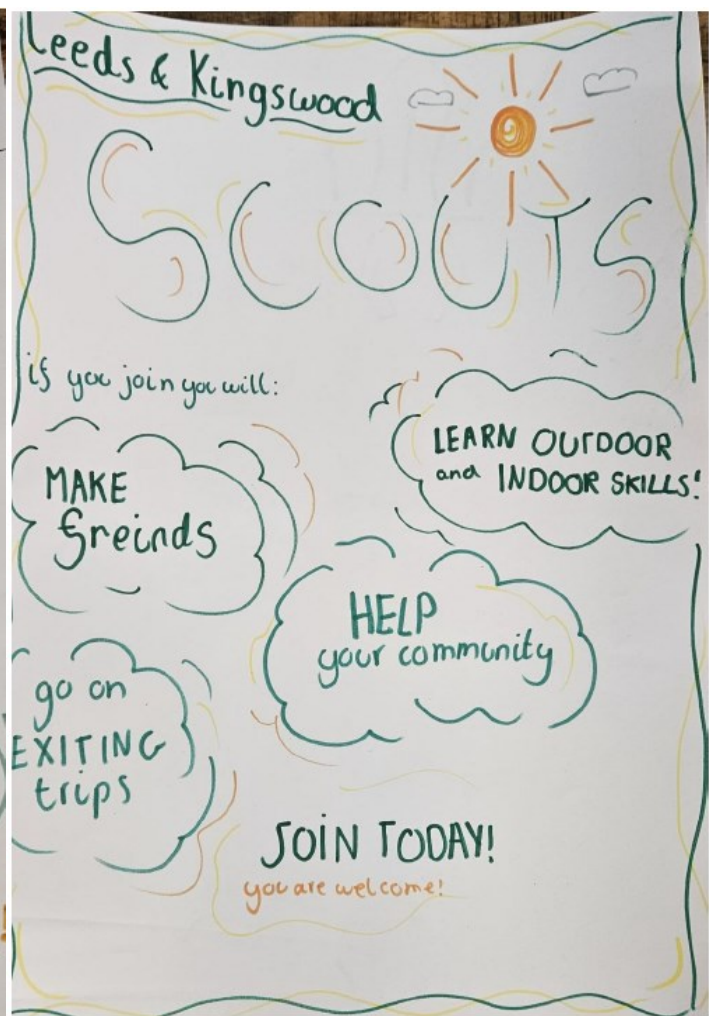 Leeds & Kingswood
SCOUTS
if you join you will:
LEARN OUTDOOR
and INDOOR SKILLS!
MAKE
freinds
HELP
your community
go on
EXITING
trips
JOIN TODAY!
you are welcome!